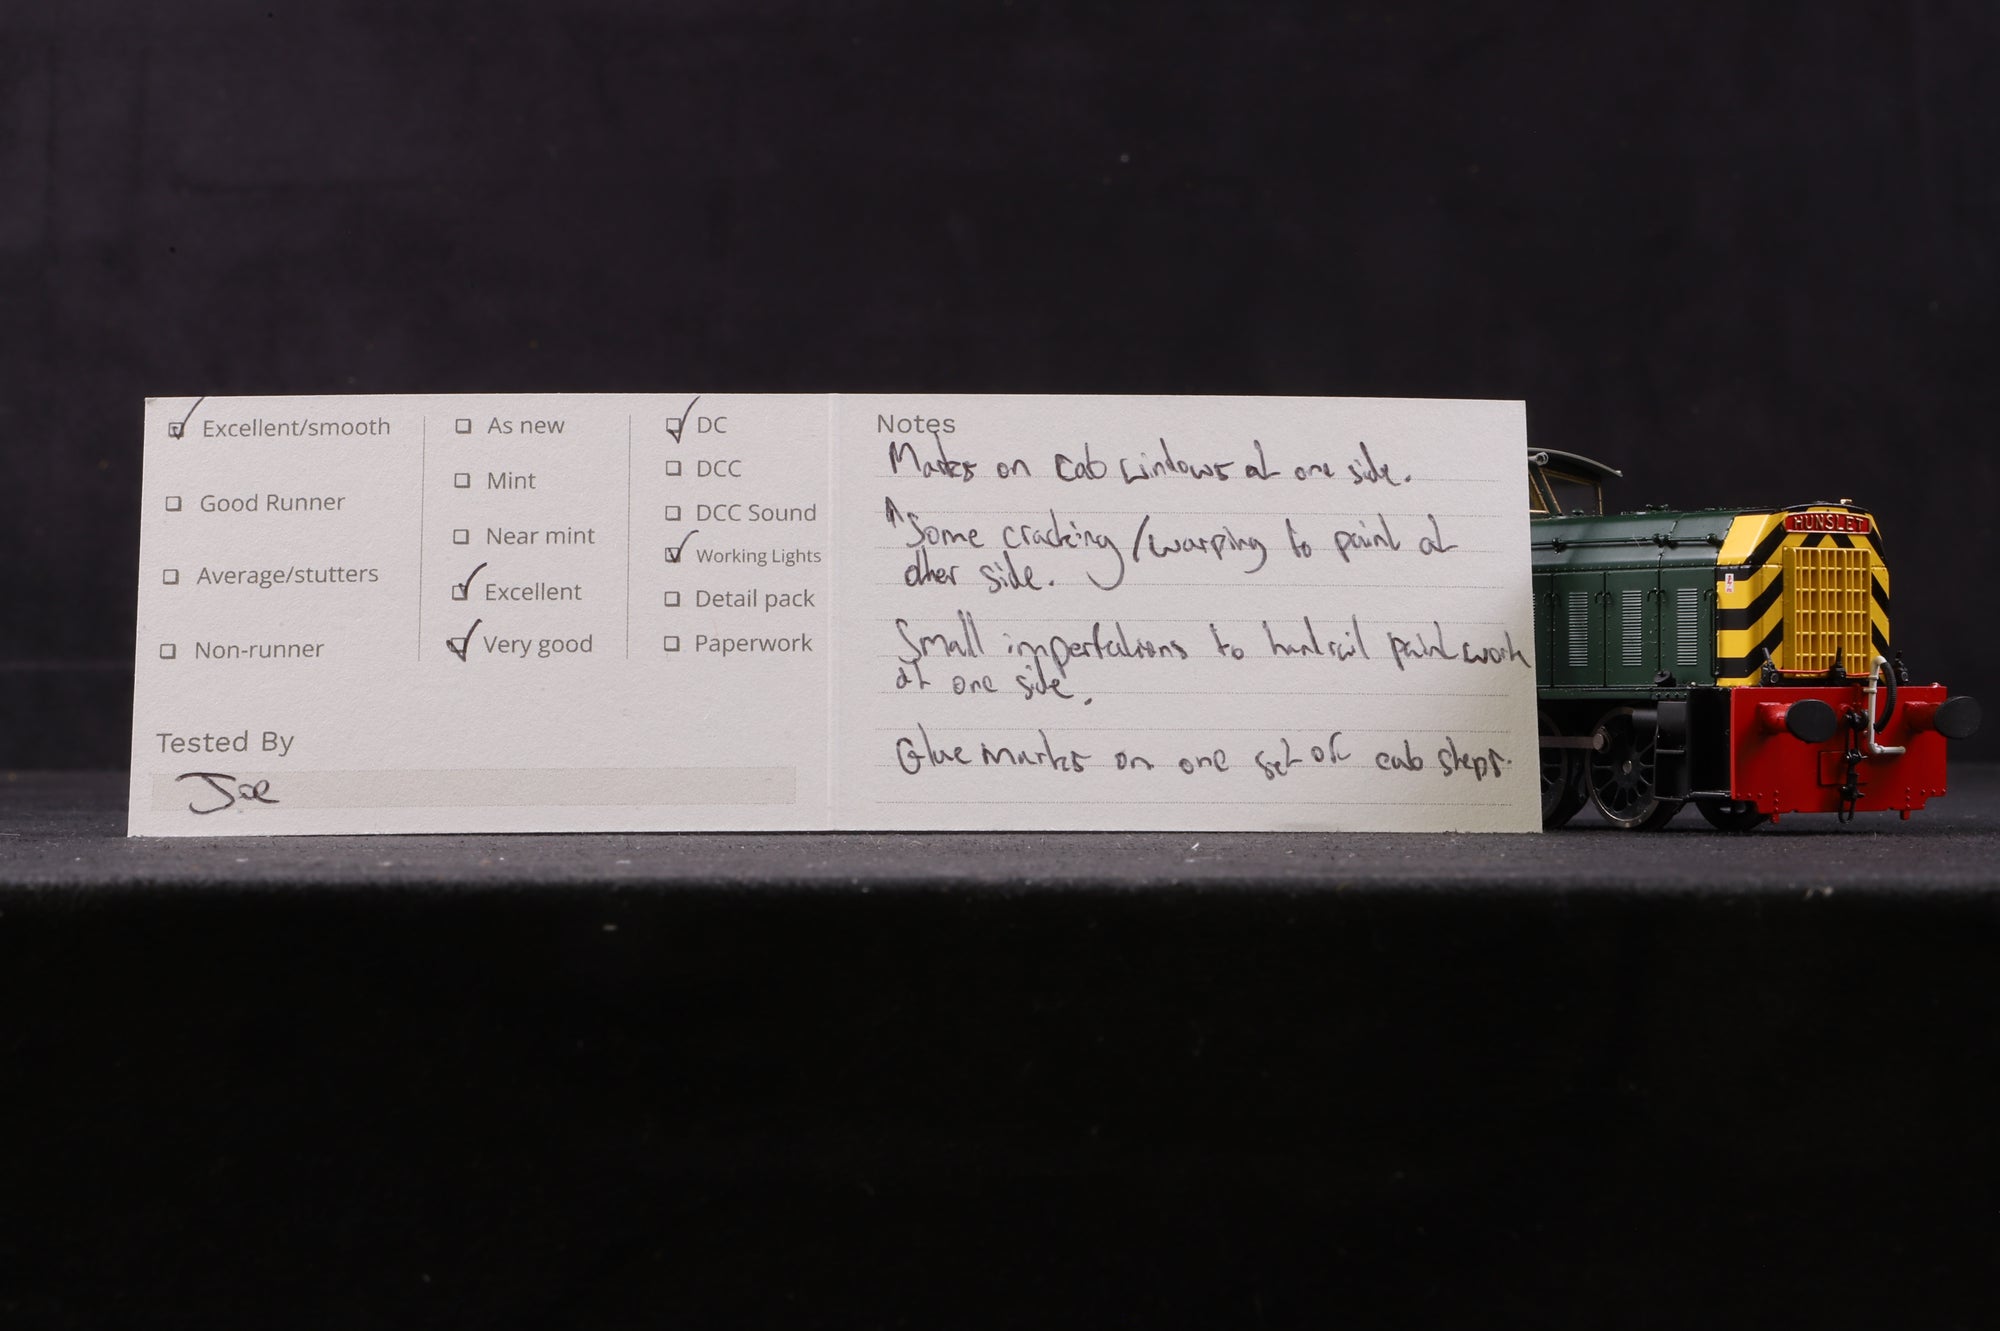 Excellent/smooth
Good Runner
Average/stutters
Non-runner
As new
Mint
Near mint
Excellent
Very good
DC
DCC
DCC Sound
Working Lights
Detail pack
Paperwork
Tested By
Joe
Notes
Marks on cab windows at one side.
Some cracking/warping to paint at
other side.
Small imperfations to handrail paintwork
at one side.
Glue marks on one set of cab steps.
HUNSLET